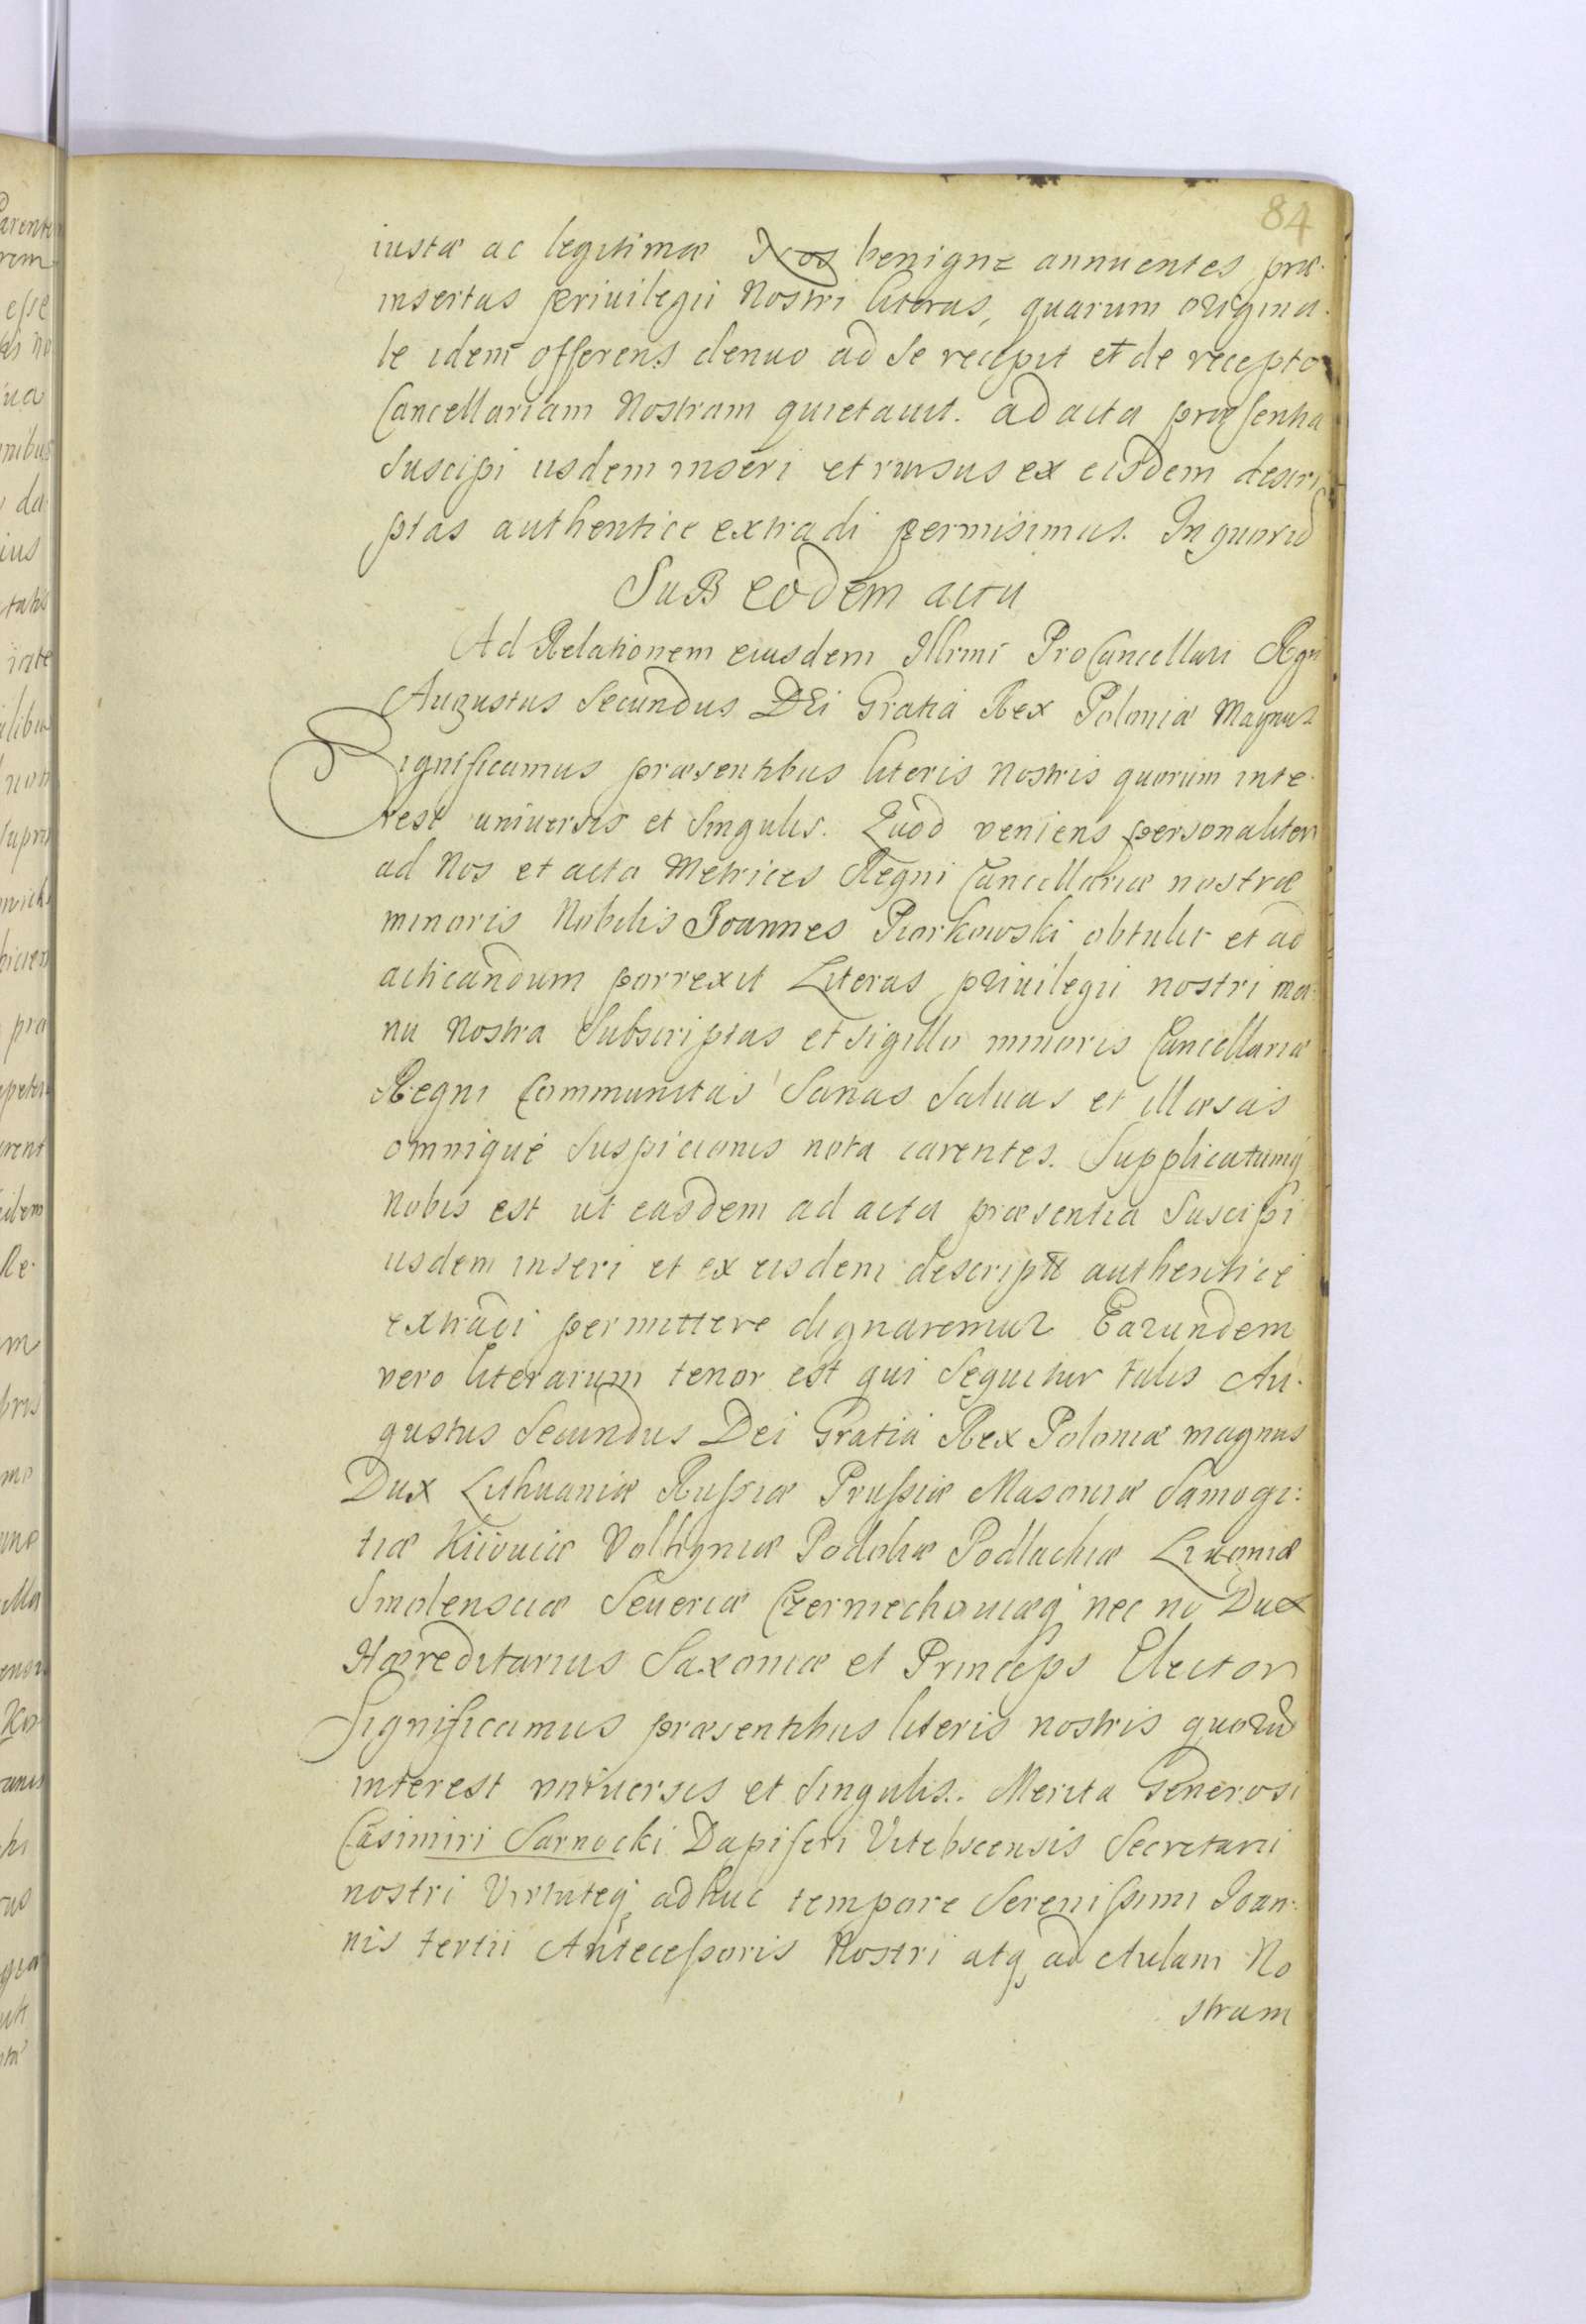 84
iustæ ac legitimæ Nos benigne annuentes præ-
insertas priuilegii Nostri literas, quarum origina-
le idem offerens denuo ad se recepit et de recepto
Cancellariam Nostram quietauit. ad acta præsentia
suscipi iisdem inseri et rursus ex eisdem descri
ptas authentice extradi permisimus. In quorũ
Sub eodem actu
Ad Relationem eiusdem Illrmi ProCancellarii Rgni
Augustus Secundus DEi Gratia Rex Poloniæ Magnus
Significamus præsentibus literis nostris quorum inte-
rest uniuersis et singulis. Quod veniens personaliter
ad Nos et acta Metrices Regni Cancellariæ nostræ
minoris Nobilis Joannes Piorkowski obtulit et ad
acticandum porrexit Literas priuilegii nostri ma-
nu Nostra Subscriptas et sigillo minoris Cancellariæ
Regni Communitas Sanas Saluas et illæsas
omnique Suspicionis nota carentes. Supplicatumq
Nobis est ut easdem ad acta præsentia Suscipi
iisdem inseri et ex eisdem descriptt authentice
extradi permittere dignaremur Earundem
vero literarum tenor est qui Sequitur talis Au-
gustus Secundus Dei Gratia Rex Poloniæ magnus
Dux Lithuaniæ Russiæ Prussiæ Masouiæ Samogi:
tiæ Kiiouiæ Volhyniæ Podoliæ Podlachiæ Liuoniæ
Smolensciæ Seueriæ Czerniechouiæq nec nõ Dux
Hæreditarius Saxoniæ et Princeps Elector
Significamus præsentibus literis nostris quorũ
interest vniuersis et Singulis. Merita Generosi
Casimiri Sarnocki Dapiferi Vitebscensis Secretarii
nostri Virtuteq adhuc tempore Serenissimi Ioan-
nis tertii Antecessoris Nostri atq ad Aulam No
stram